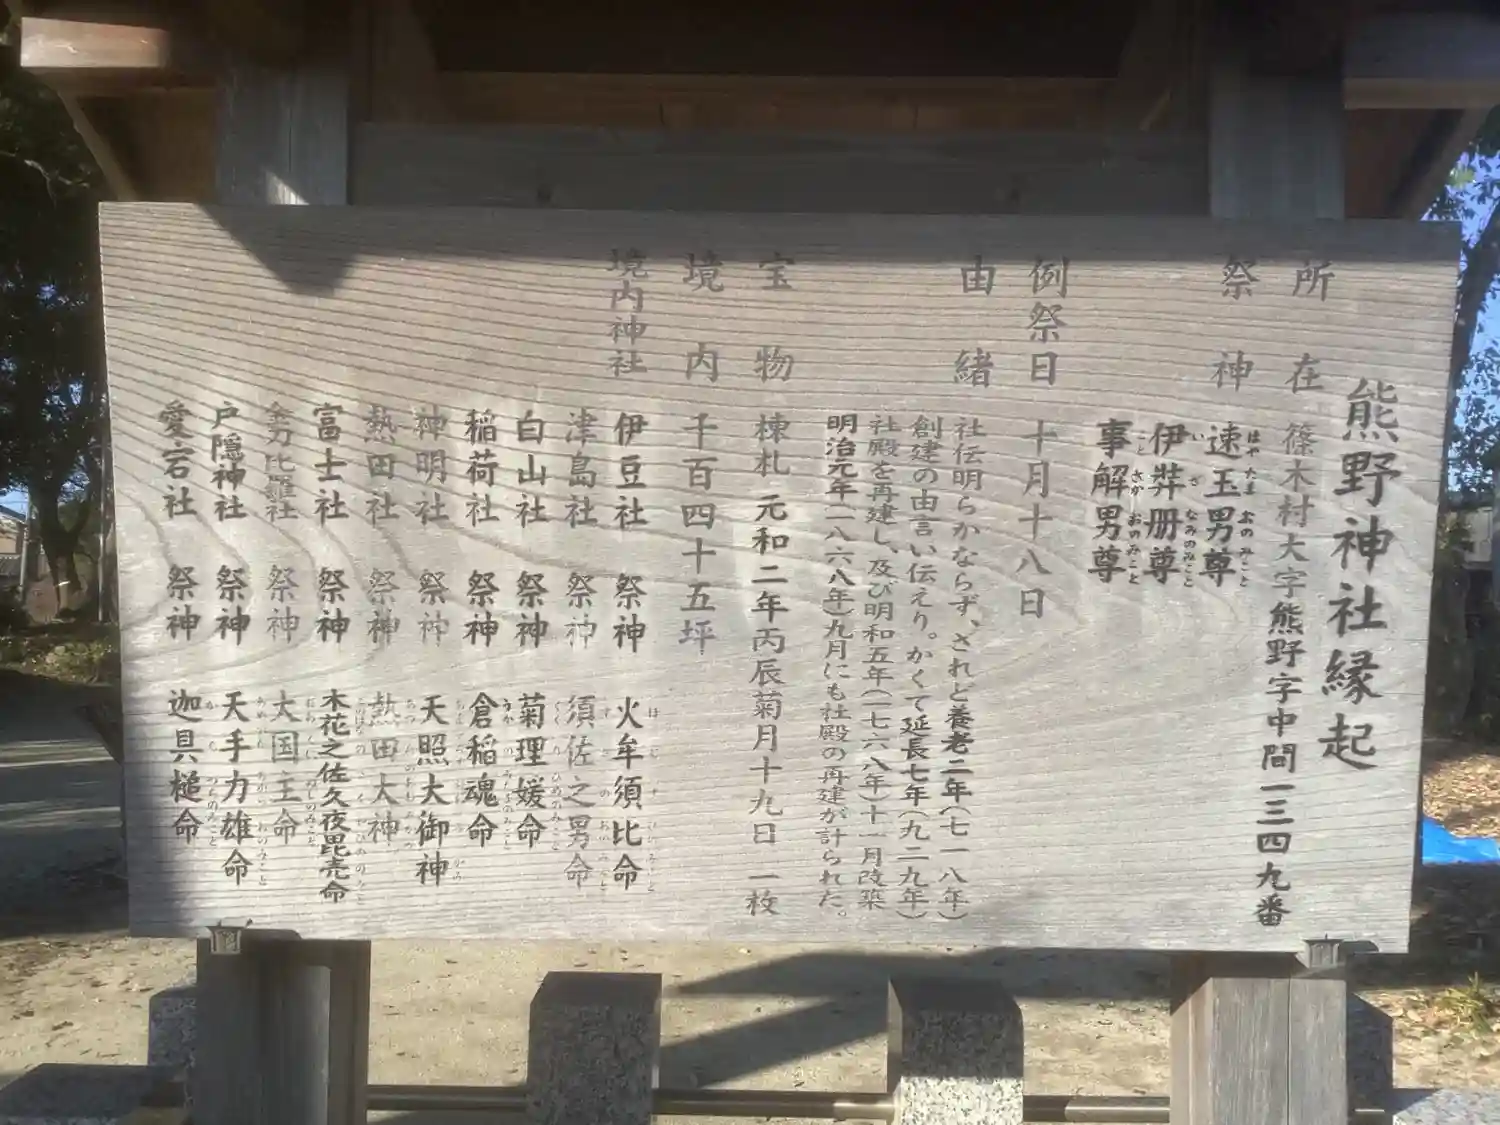 熊野神社縁起
所在 篠木村大字熊野字中間一三四九番
祭神 速玉男尊
伊弉册尊
事解男尊
例祭日 十月十八日
由緒 社伝明らかならず、されど養老二年(七一八年)
創建の由言い伝えり。かくて延長七年(九二九年)
社殿を再建し、及び明和五年(一七六八年)十一月改築
明治元年(一八六八年)九月にも社殿の再建が計られた。
宝物 棟札 元和二年丙辰菊月十九日 一枚
境内 千百四十五坪
境内神社 伊豆社 祭神 火牟須比命
津島社 祭神 須佐之男命
白山社 祭神 菊理媛命
稲荷社 祭神 倉稲魂命
神明社 祭神 天照大御神
熱田社 祭神 熱田大神
富士社 祭神 木花之佐久夜毘売命
金刀比羅社 祭神 大国主命
戸隠神社 祭神 天手力雄命
愛宕社 祭神 迦具槌命